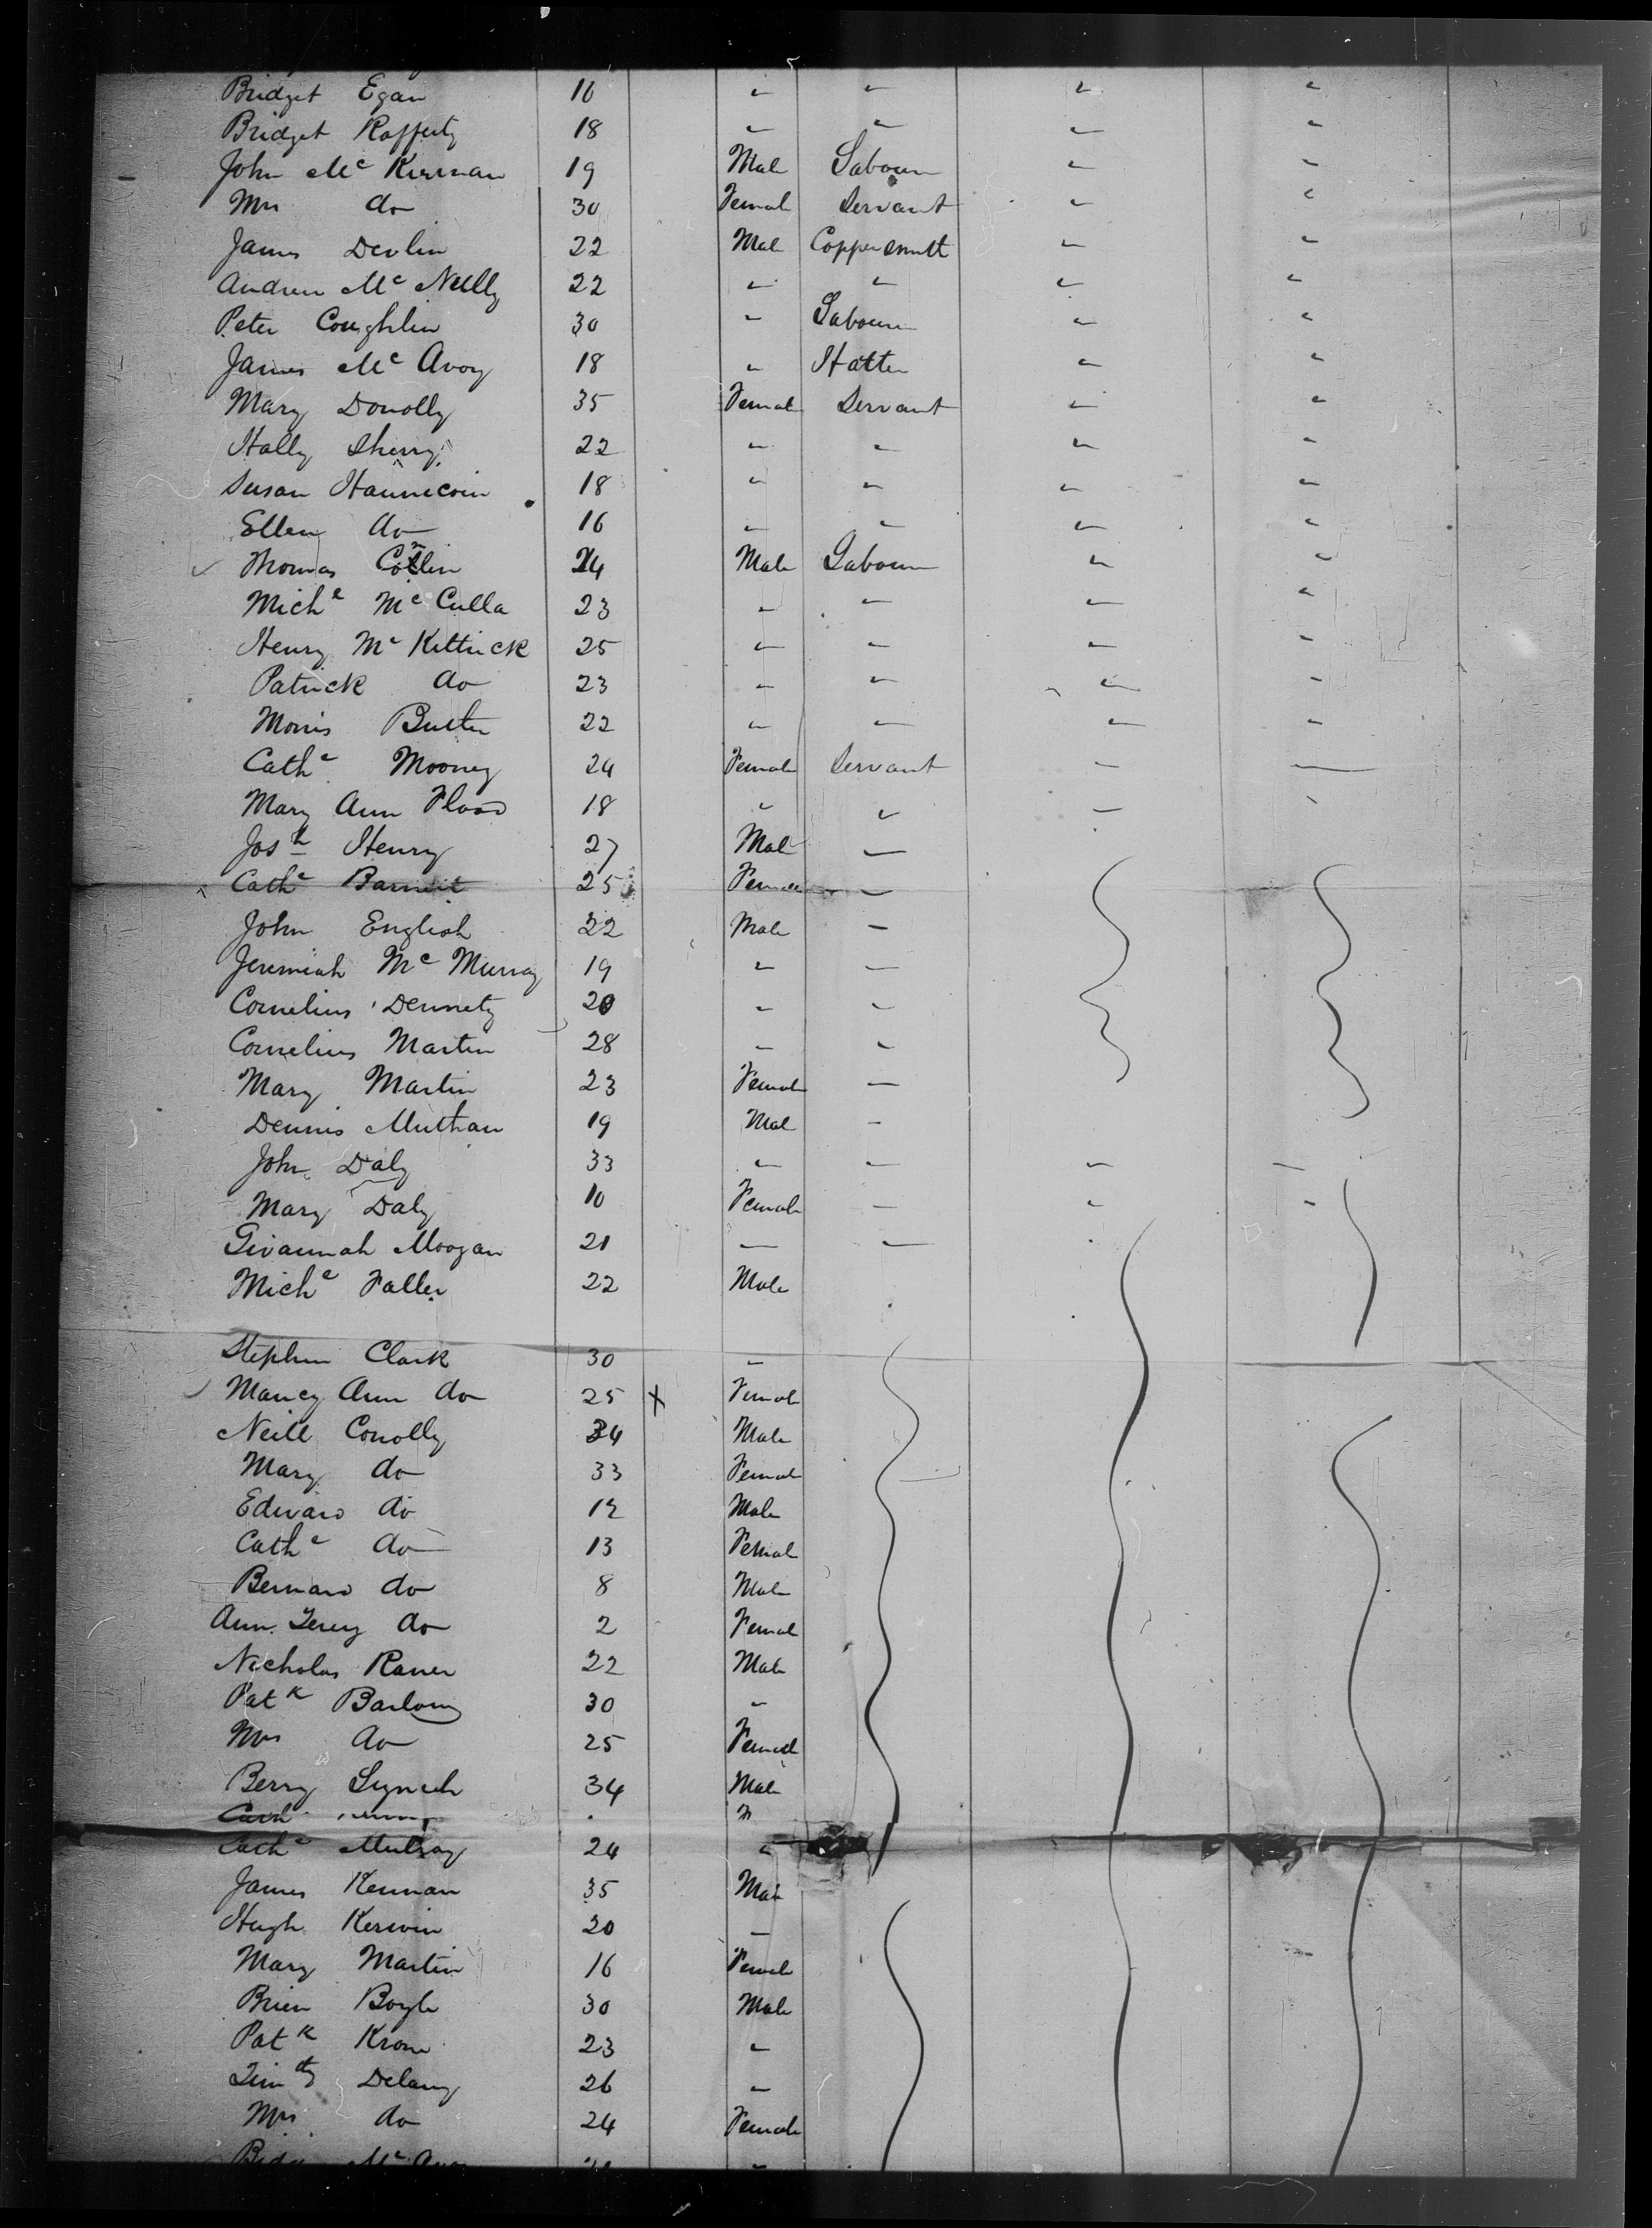 Bridget Egan 16 " " " "
Bridget Rafferty 18 " " " "
John Mc Kiernan 19 Male Labourer " "
Mrs do 30 Female Servant " "
James Devlin 22 Male Coppersmith " "
Andrew Mc Neilly 22 " " " "
Peter Coughlin 30 " Labourer " "
James Mc Avoy 18 " Hatter " "
Mary Donolly 35 Female Servant " "
Hally Sherry 22 " " " "
Susan 18 " " " "
Ellen do 16 " " " "
Thomas 24 Male Labourer " "
Miche Mc Culla 23 " " " "
Henry Mc Kittrick 25 " " " "
Patrick do 23 " " " "
Morris Butler 22 " " " "
Cathe Mooney 24 Female Servant " "
Mary Ann Flood 18 " " "
Josh Henry 27 Male "
Cathe 25 Female "
John English 22 Male "
Jeremiah Mc Murray 19 " "
Cornelius Dennety 20 " "
Cornelius Martin 28 " "
Mary Martin 23 Female "
Dennis 19 Male "
John Daly 33 " " " "
Mary Daly 10 Female " " "
Givannah Moogan 21 " "
Miche Faller 22 Male
Stephen Clark 30 "
Nancy Ann do 25 X Female
Neill Conolly 34 Male
Mary do 33 Female
Edward do 12 Male
Cathe do 13 Female
Bernard do 8 Male
Ann do 2 Female
Nicholas 22 Male
Patk 30 "
Mrs do 25 Female
Berry Lynch 34 Male
Cathe 24 "
James Kennan 35 Male
Hugh Kerwin 20 "
Mary Martin 16 Female
Brien Boyle 30 Male
Patk 23 "
Timthy Delany 26 "
Mrs do 24 Female